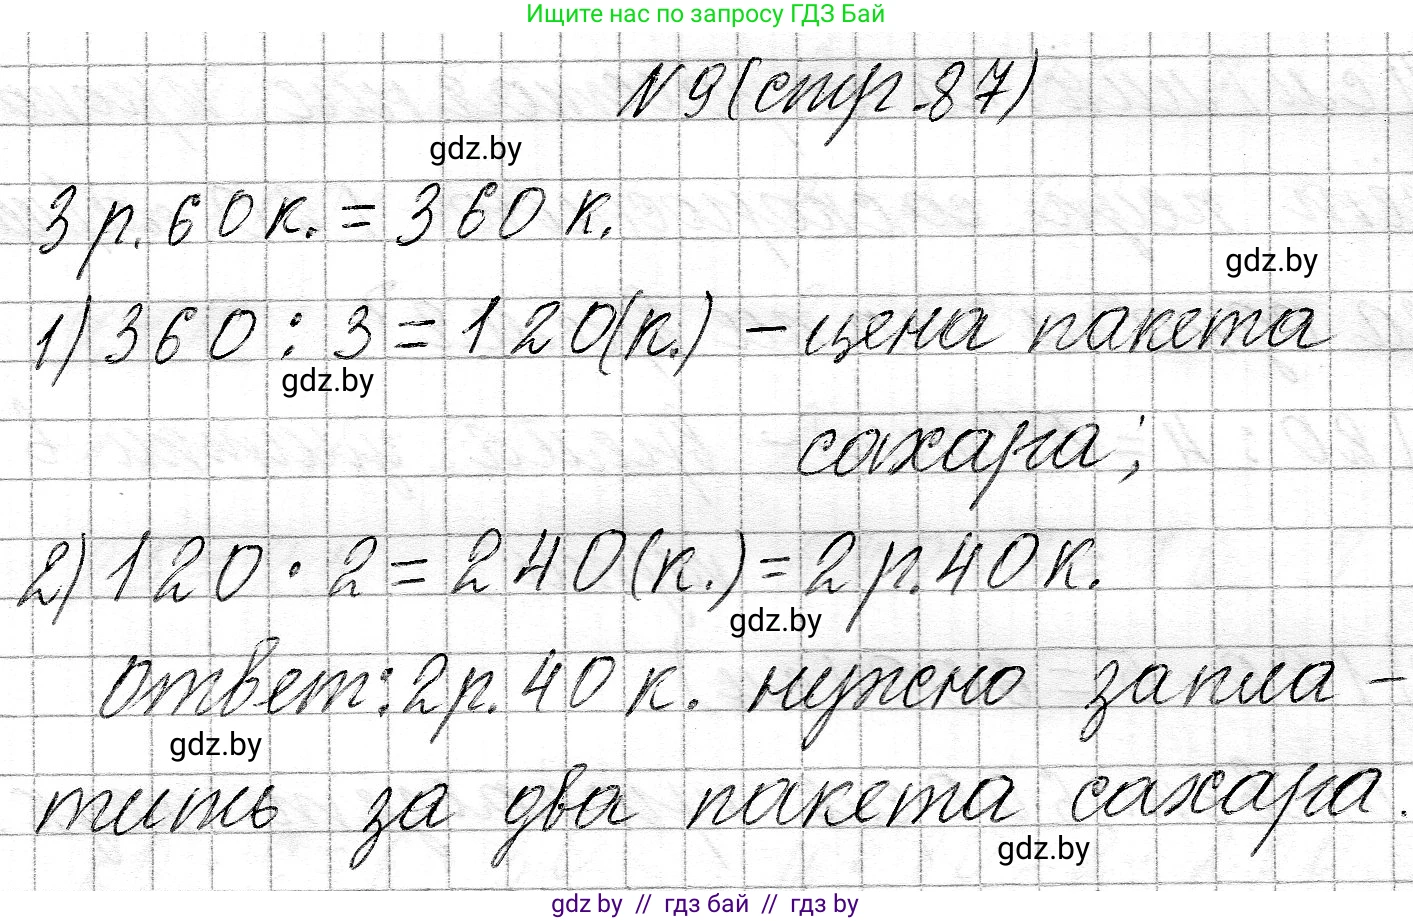 Ищите нас по запросу ГДЗ Бай
N 9 (стр. 87)
gdz.by
3 р. 60 к. = 360 к.
gdz.by
1) 360 : 3 = 120 (к.) – цена пакета
gdz.by
сахара;
2) 120 · 2 = 240 (к.) = 2 р. 40 к.
gdz.by
ответ: 2 р. 40 к. нужно запла-
gdz.by
тить за два пакета сахара.
gdz.by
gdz by // гдз бай // гдз by